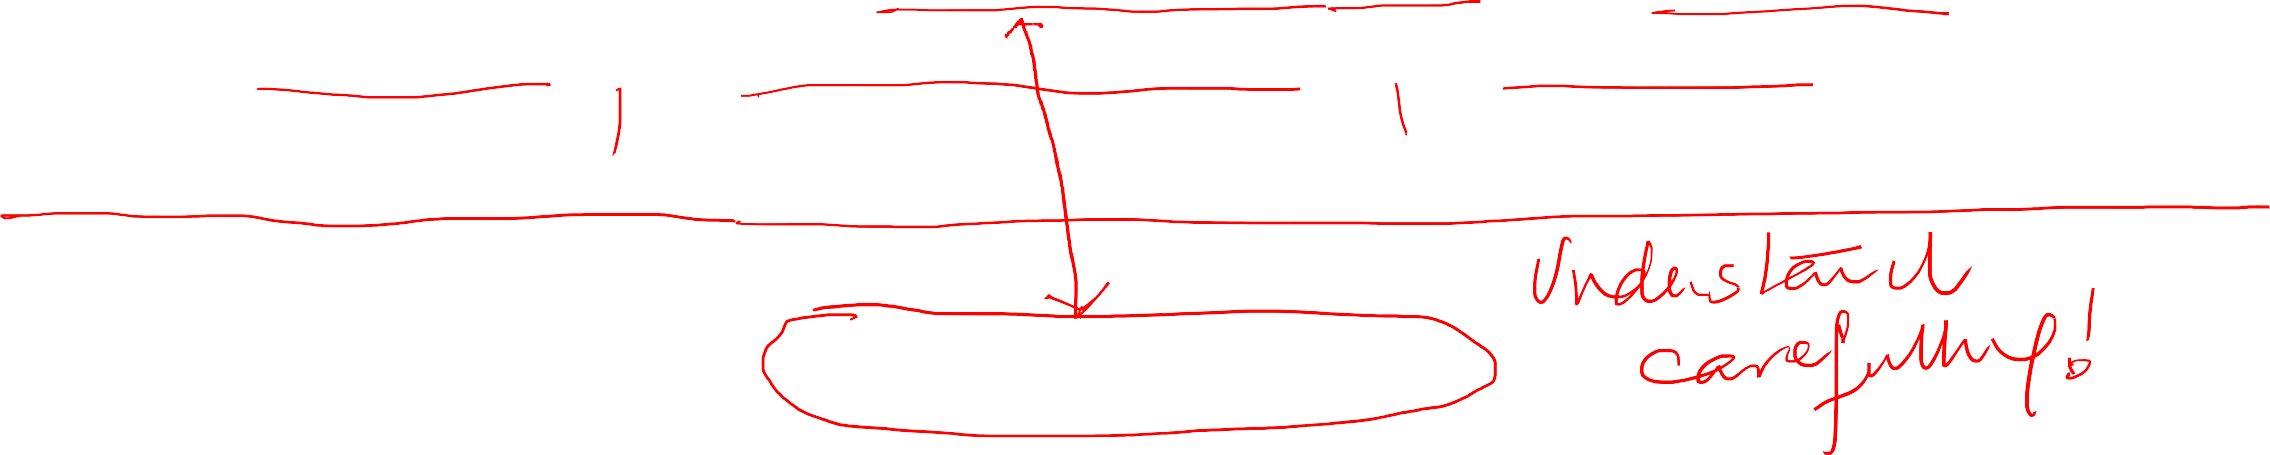 Understand
carefully!